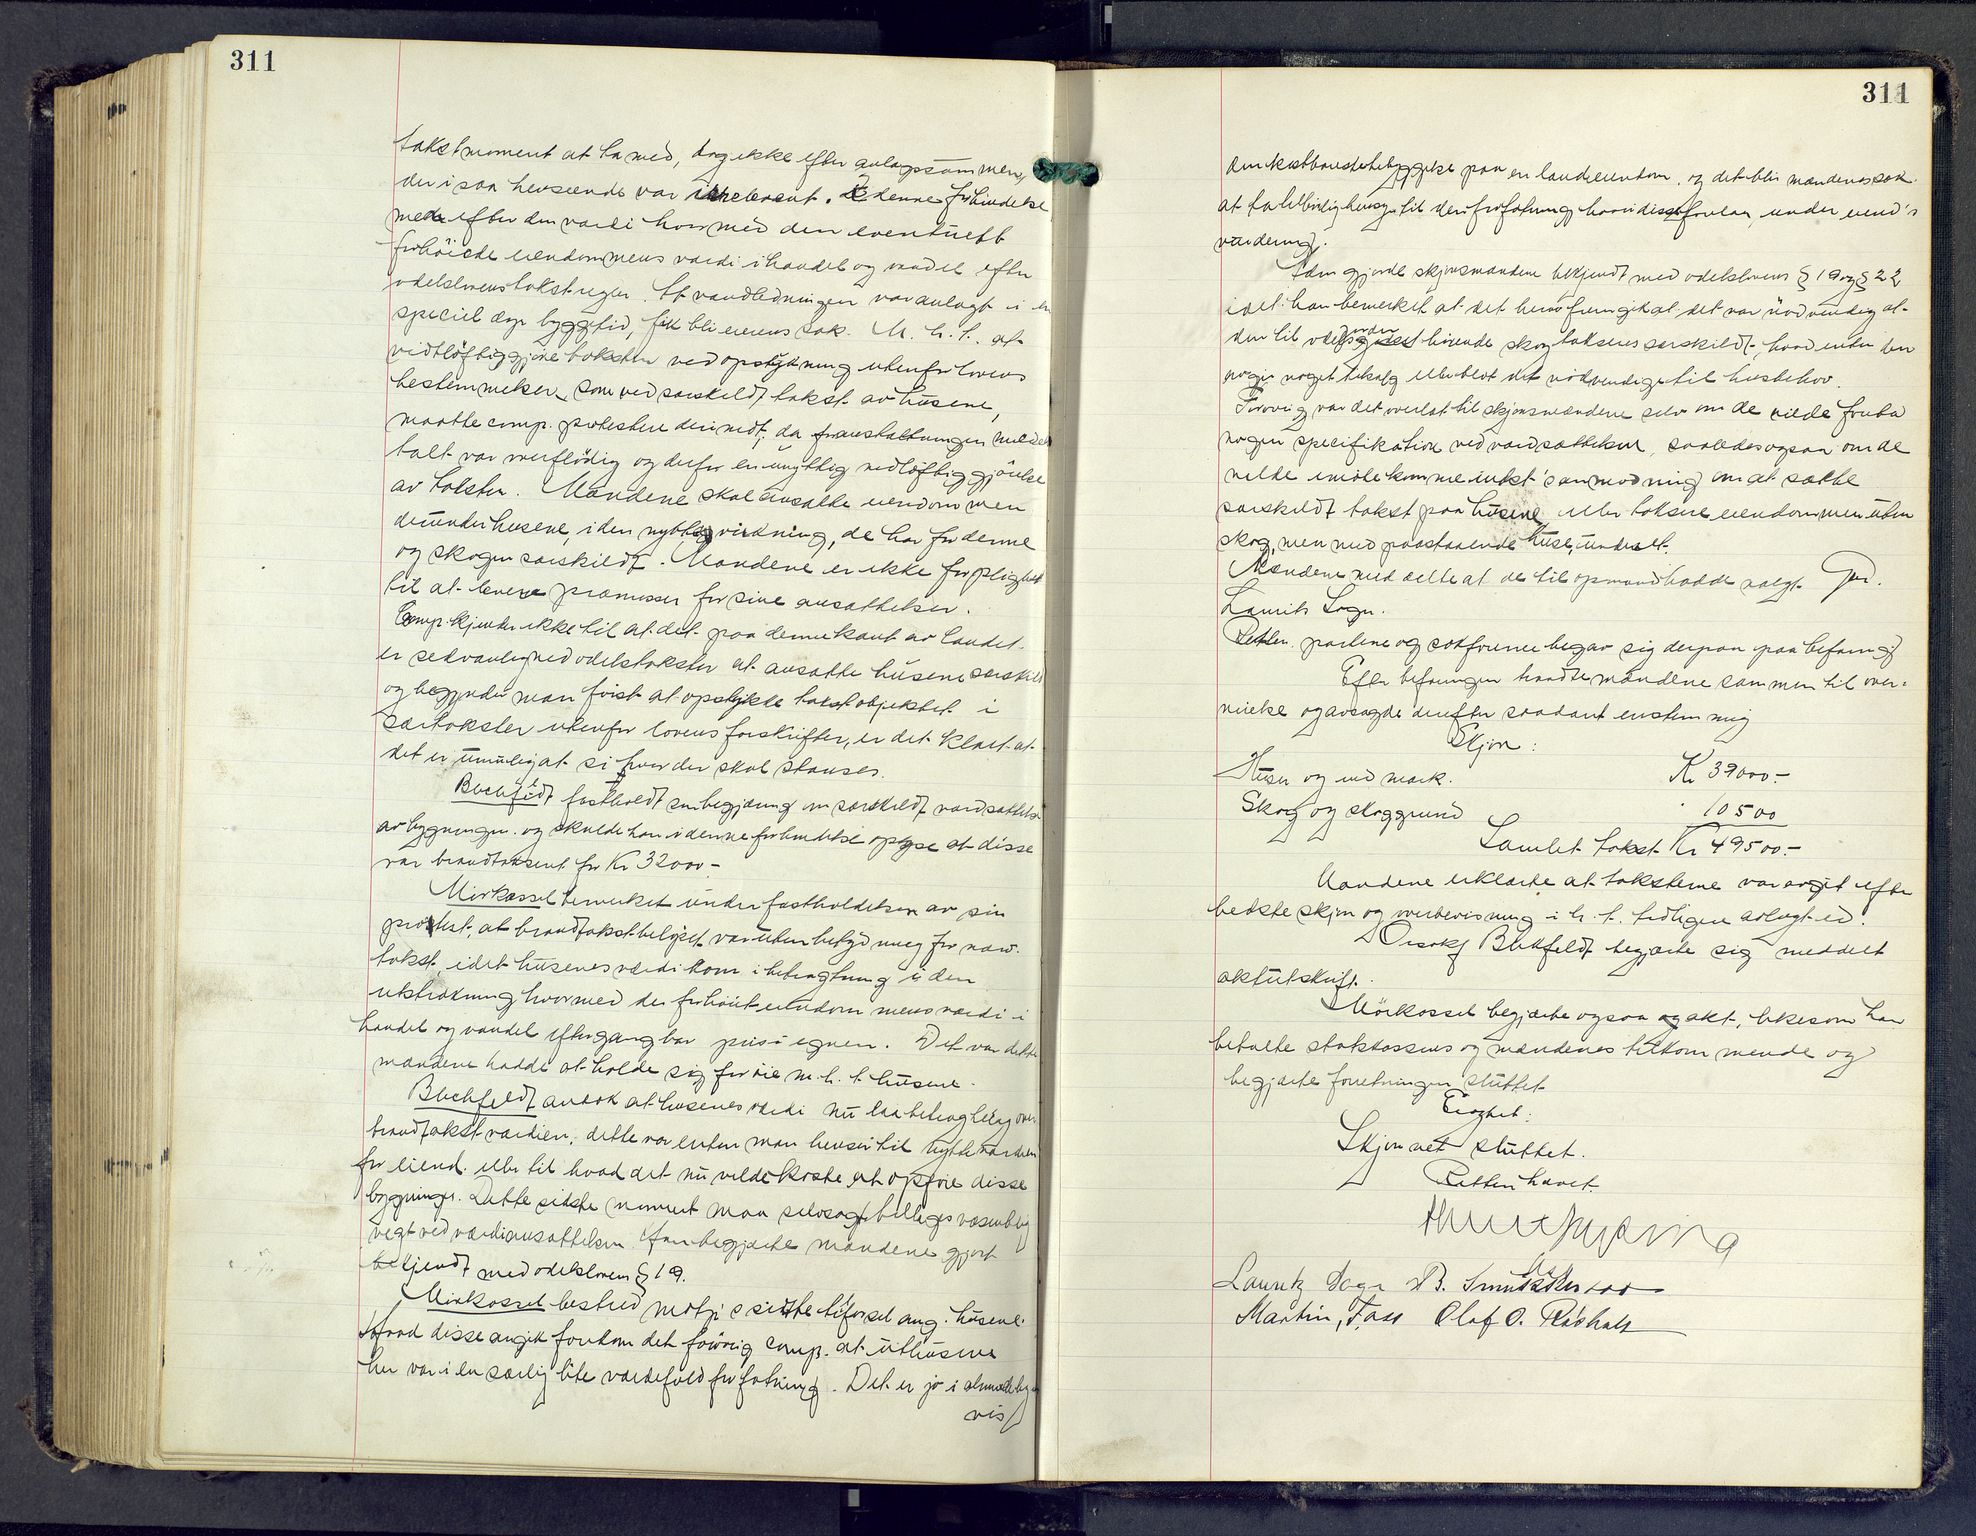 311
takstmoment at ta med, dog ikke efter anlægssummen,
der i saa henseende var irrelevant. I denne forbindelse
men efter den værdi hvormed den eventuelt
forhöiede eiendommens værdi i handel og vandel efter
odelslovens takstregler. At vandledningen var anlagt i en
speciel dyr byggetid, fik bli eierens sak. M. h. t. at
vidtlöftiggjöre taksten ved opstykning utenfor lovens
bestemmelser, som ved særskildt takst av husene,
maatte comp. protestere derimot, da foranstaltningen
talt var overflödig og derfor en unyttig vidtlöftiggjörelse
av taksten. Mændene skal ansætte eiendommen
derunder husene, i den nyttevirkning, de har for denne
og skogen særskildt. Mændene er ikke forpligtet
til at levere præmisser for sine ansættelser.
Comp. kjender ikke til at det paa denne kant av landet
er sedvanlig ved odelstakster at ansætte husene særskildt
og begynder man först at opstykke takstobjektet i
særtakster utenfor lovens forskrifter, er det klart at
det er umulig at si hvor der skal stanses.
Buchfeldt fastholdt sin begjæring om særskildt værdsættelse
av bygningen og skulde han i denne forbindelse oplyse at disse
var brandtaksert for Kr 32000.-
Mörkassel bemerket under fastholdelsen av sin
protest, at brandtakstbelöpet var uten betydning for nærv.
takst, idet husenes værdi kom i betragtning i den
utstrækning hvormed der forhöiet eiendommens værdi i
handel og vandel efter gangbar pris i egnen. Det var dette
mændene hadde at holde sig for öie m. h. t. husene.
Buchfeldt antok at husenes værdi nu laa betragtelig over
brandtakstværdien, dette var enten man henser til nytteværdien
for eiend. eller til hvad det nu vilde koste at opföre disse
bygninger. Dette sidste moment maa selvsagt tillægges væsentlig
vegt ved værdiansættelsen. Han begjærte mændene gjort
bekjendt med odelslovens § 19.
Mörkassel bestred motp's sidste tilförsel ang. husene.
Hvad disse angik forekom det forövrig comp. at uthusene
her var i en særlig lite værdifuld forfatning. Det er jo i almindelig
vis
311
den kostbareste bebyggelse paa en landeiendom, og det blir mændenes sak
at ta tilbörlig hensyn til den forfatning hvori disse forefandtes, under eiend's
vurdering.
Adm. gjorde skjönsmændene bekjendt med odelslovens § 19 og § 22
idet han bemerket at det herav fremgik at det var nödvendig at
den til odelsgodset hörende skog takseres særskildt, hvad enten den
avgir noget tilsalg eller blot det nödvendige til husbehov.
Forövrig var det overlat til skjönsmændene selv om de vilde foreta
nogen specifikation ved værdsættelsen, saaledes ogsaa om de
vilde imötekomme rekst's anmodning om at sætte
særskildt takst paa husene eller taksere eiendommen uten
skog, men med paastaaende huse, underet.
Mændene meddelte at de til opmand hadde valgt Grd.
Laurits Sogn.
Retten, partene og sakförerne begav sig derpaa paa befaring.
Efter befaringen traadte mændene sammen til over-
veielse og avsagde derefter saadant enstemmig
Skjön:
Huser og indmark. Kr 39000.-
Skog og skoggrund " 10500
Samlet takst Kr 49500.-
Mændene erklærte at taksterne var avgit efter
bedste skjön og overbevisning i h. t. tidligere avlagt ed.
Orsakf Buchfeldt begjærte sig meddelt
aktutskrift.
Mörkassel begjærte ogsaa akt, likesom han
betalte statskassens og mændenes tilkommende og
begjærte forretningen sluttet
Eragtet:
Skjönnet sluttet.
Retten hævet.
Lauritz Sogn B. Smukkestad
Martin, Foss Olaf O. Röisholt